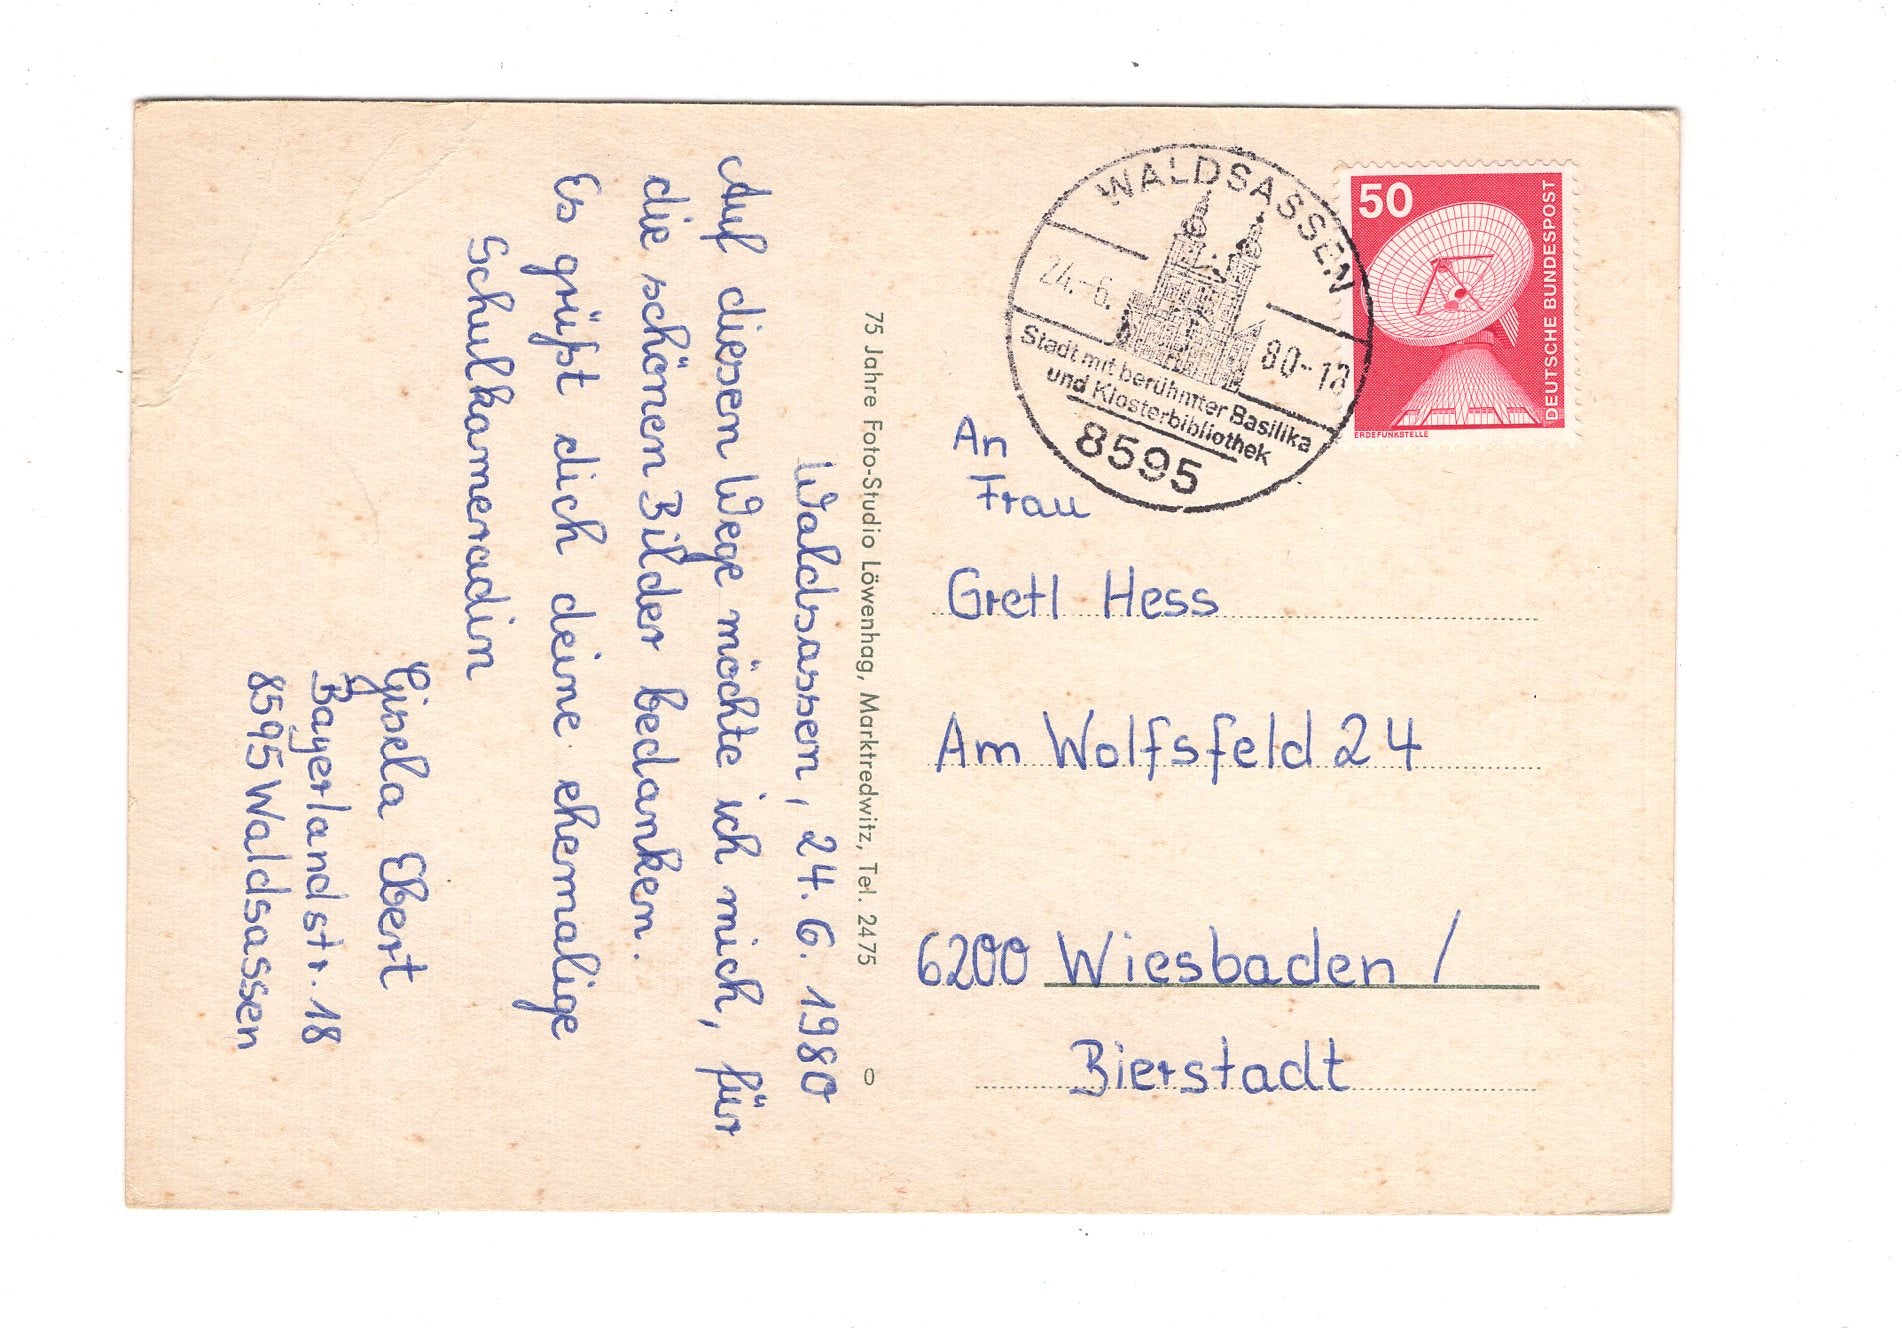 Waldsassen, 24. 6. 1980
Auf diesen Wege möchte ich mich, für
die schönen Bilder bedanken.
Es grüßt dich deine ehemalige
Schulkameradin
Gisela Ebert
Bayerlandstr. 18
8595 Waldsassen
75 Jahre Foto-Studio Löwenhag, Marktredwitz, Tel. 2475
WALDSASSEN
24.-6.
80-18
Stadt mit berühmter Basilika
und Klosterbibliothek
8595
50
DEUTSCHE BUNDESPOST
ERDEFUNKSTELLE
An
Frau
Gretl Hess
Am Wolfsfeld 24
6200 Wiesbaden /
Bierstadt